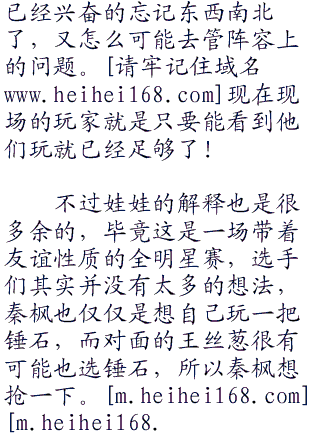 已经兴奋的忘记东西南北
了，又怎么可能去管阵容上
的问题。[请牢记住域名
www.heihei168.com]现在现
场的玩家就是只要能看到他
们玩就已经足够了！
不过娃娃的解释也是很
多余的，毕竟这是一场带着
友谊性质的全明星赛，选手
们其实并没有太多的想法，
秦枫也仅仅是想自己玩一把
锤石，而对面的王丝葱很有
可能也选锤石，所以秦枫想
抢一下。[m.heihei168.com]
[m.heihei168.